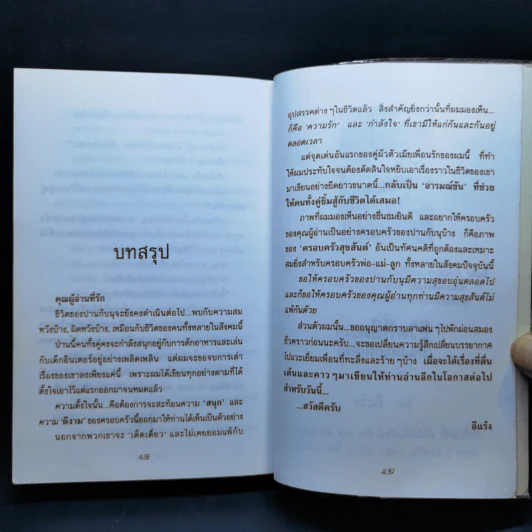 บทสรุป
คุณผู้อ่านที่รัก
ชีวิตของปานกับนุจะยังคงดำเนินต่อไป...พบกับความสม
หวังบ้าง, ผิดหวังบ้าง, เหมือนกับชีวิตของคนทั้งหลายในสังคมนี้
ป่านนี้คนทั้งคู่คงจะกำลังสนุกอยู่กับการดักอาหารและเล่น
กับเด็กอินเตอร์อยู่อย่างเพลิดเพลิน แต่ผมจะขอจบการเล่า
เรื่องของเขาลงเพียงแค่นี้ เพราะผมได้เขียนทุกอย่างตามที่ได้
ตั้งใจเอาไว้แต่แรกออกมาจนหมดแล้ว
ความตั้งใจนั้น...คือต้องการจะสะท้อนความ 'สนุก' และ
ความ 'ดีงาม' ของครอบครัวนี้ออกมาให้ท่านได้เห็นเป็นตัวอย่าง
นอกจากพวกเขาจะ 'เด็ดเดี่ยว' และไม่เคยยอมแพ้กับ
438
อุปสรรคต่าง ๆในชีวิตแล้ว สิ่งสำคัญยิ่งกว่านั้นที่ผมมองเห็น...
ก็คือ 'ความรัก' และ 'กำลังใจ' ที่เขามีให้แก่กันและกันอยู่
ตลอดเวลา
แต่จุดเด่นอันแรกของคู่ผัวตัวเมียเพื่อนรักของผมนี้ ที่ทำ
ให้ผมประทับใจจนต้องตัดสินใจหยิบเอาเรื่องราวในชีวิตของเขา
มาเขียนอย่างยืดยาวขนาดนี้...กลับเป็น 'อารมณ์ขัน' ที่ช่วย
ให้คนทั้งคู่ยิ้มสู้กับชีวิตได้เสมอ!
ภาพที่ผมมองเห็นอย่างชื่นชมยินดี และอยากให้ครอบครัว
ของคุณผู้อ่านเป็นอย่างครอบครัวของปานกับนุบ้าง ก็คือภาพ
ของ 'ครอบครัวสุขสันต์' อันเป็นทัศนคติที่ถูกต้องและเหมาะ
สมยิ่งสำหรับครอบครัวพ่อ-แม่-ลูก ทั้งหลายในสังคมปัจจุบันนี้
ขอให้ครอบครัวของปานกับนุมีความสุขอบอุ่นตลอดไป
และก็ขอให้ครอบครัวของคุณผู้อ่านทุกท่านมีความสุขสันต์ไม่
แพ้กันด้วย
ส่วนตัวผมนั้น...ขออนุญาตกราบลาแฟน ๆไปพักผ่อนสมอง
ชั่วคราวก่อนนะครับ...จะขอเปลี่ยนความรู้สึกเปลี่ยนบรรยากาศ
ไปแวะเยี่ยมเพื่อนที่ทะลึ่งและร้าย ๆบ้าง เผื่อจะได้เรื่องที่ตื่น
เต้นและคาว ๆมาเขียนให้ท่านอ่านอีกในโอกาสต่อไป
สำหรับวันนี้...
...สวัสดีครับ
อีแร้ง
439